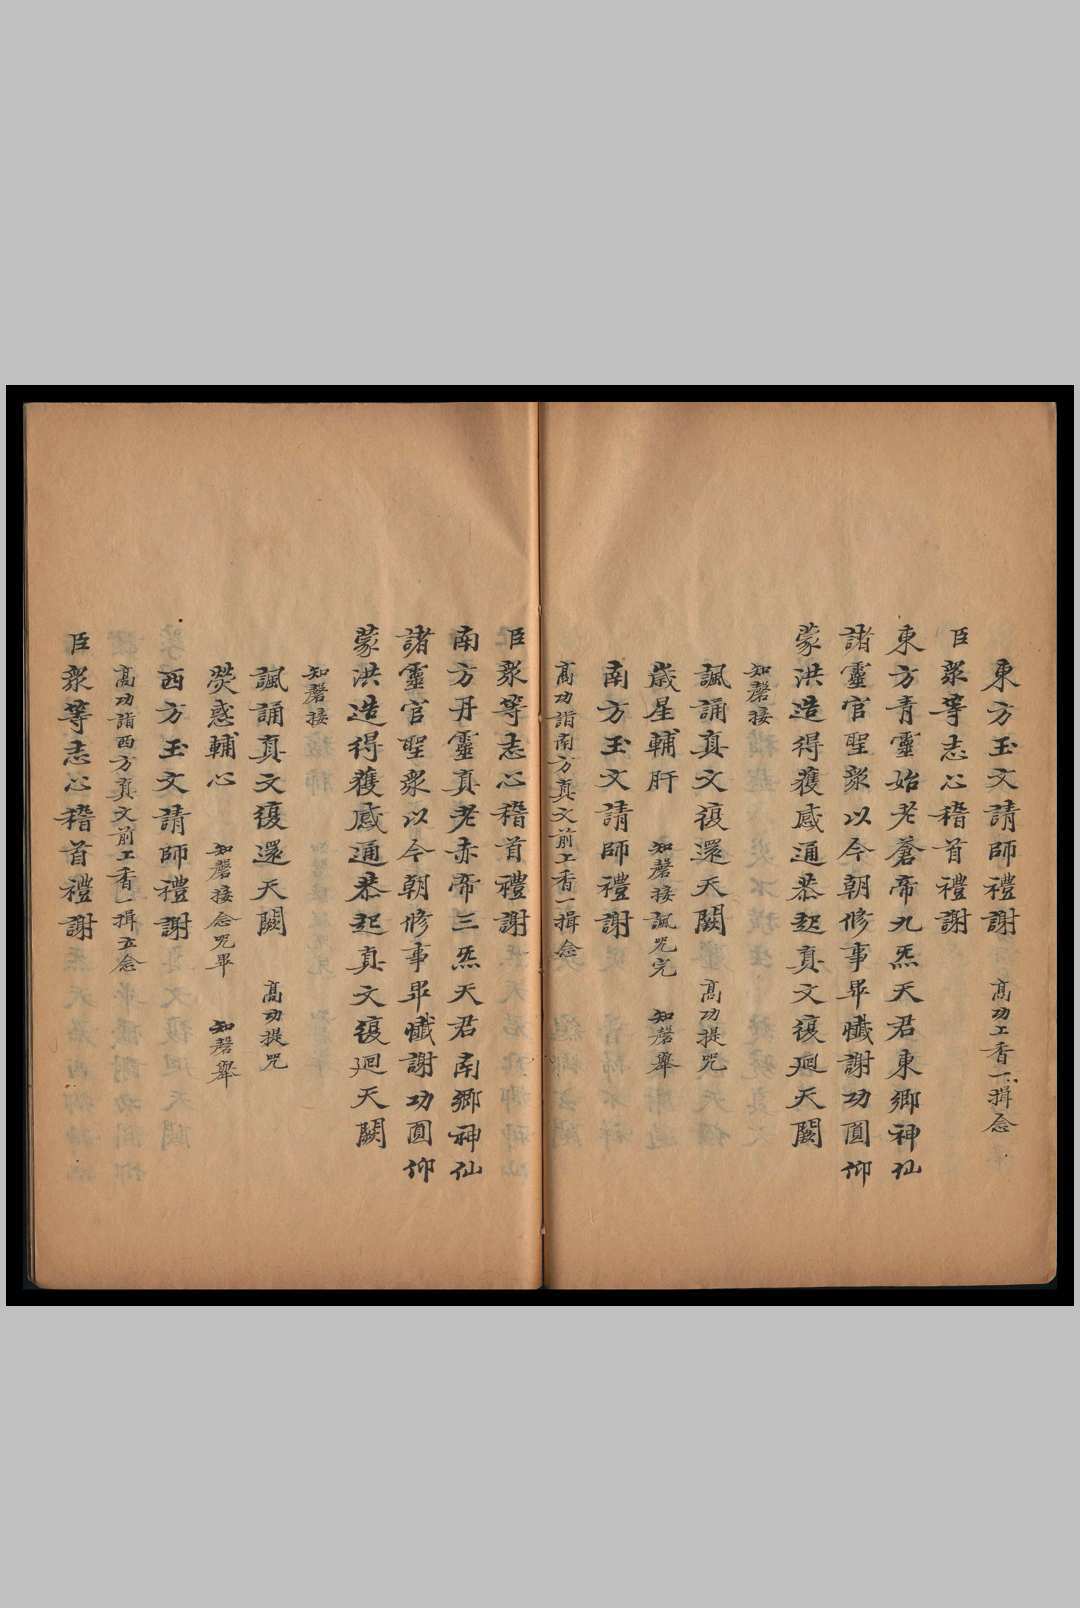 東方玉文請師禮謝 高功上香一揖念
臣衆等志心稽首禮謝
東方青靈始老蒼帝九炁天君東鄉神仙
諸靈官聖衆以今朝修事畢懺謝功圓仰
蒙洪造得獲感通恭起真文復廻天闕
知磬接
諷誦真文復還天闕 高功提咒
歲星輔肝 知磬接諷咒完 知磬舉
南方玉文請師禮謝
高功詣南方真文前上香一揖念
臣衆等志心稽首禮謝
南方丹靈真老赤帝三炁天君南鄉神仙
諸靈官聖衆以今朝修事畢懺謝功圓仰
蒙洪造得獲感通恭起真文復廻天闕
知磬接
諷誦真文復還天闕 高功提咒
熒惑輔心 知磬接念咒畢 知磬舉
西方玉文請師禮謝
高功詣西方真文前上香一揖立念
臣衆等志心稽首禮謝